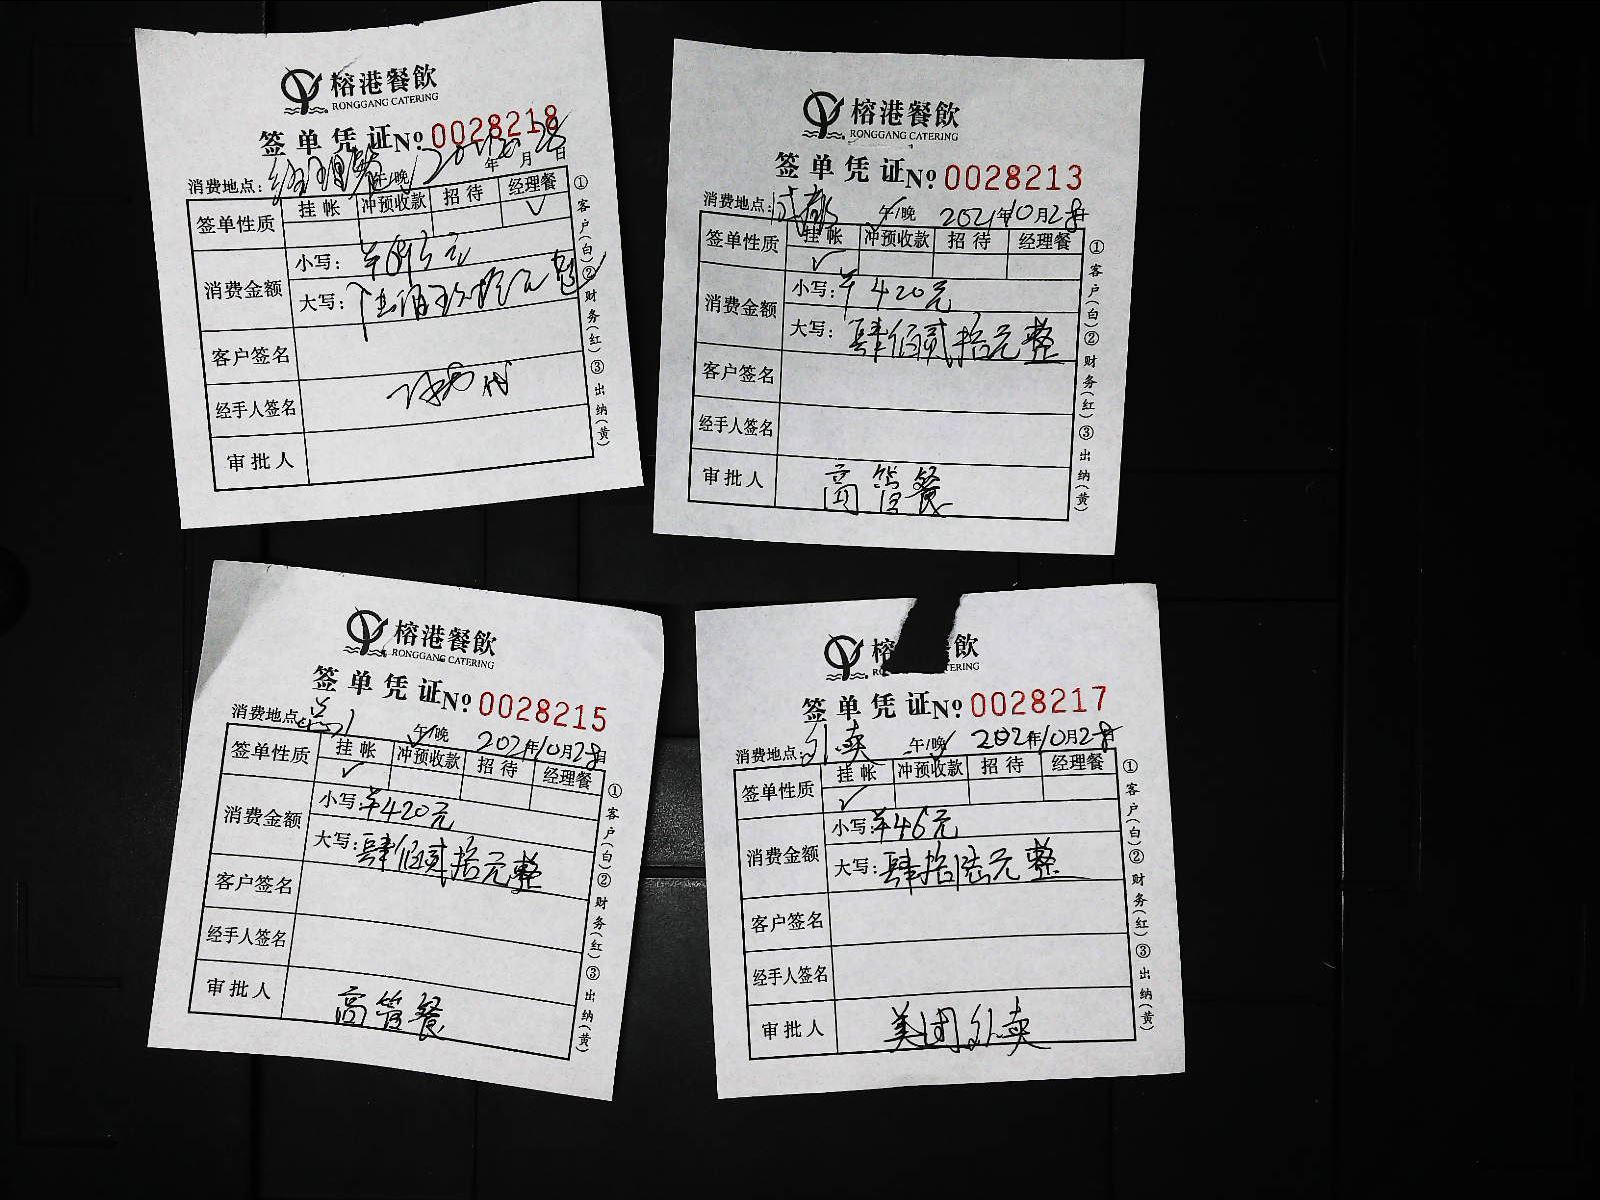 榕港餐飲
RONGGANG CATERING
签单凭证 No 0028218
消费地点：经理餐 午/晚 2021年10月28日
签单性质 挂帐 冲预收款 招待 经理餐
√
消费金额 小写：
大写：
客户签名
经手人签名
审批人
①客户(白)②财务(红)③出纳(黄)
榕港餐飲
RONGGANG CATERING
签单凭证 No 0028213
消费地点：成都 午/晚 2021年10月28日
签单性质 挂帐 冲预收款 招待 经理餐
√
消费金额 小写：￥420元
大写：肆佰贰拾元整
客户签名
经手人签名
审批人 高管餐
①客户(白)②财务(红)③出纳(黄)
榕港餐飲
RONGGANG CATERING
签单凭证 No 0028215
消费地点： 午/晚 2021年10月28日
签单性质 挂帐 冲预收款 招待 经理餐
√
消费金额 小写：￥420元
大写：肆佰贰拾元整
客户签名
经手人签名
审批人 高管餐
①客户(白)②财务(红)③出纳(黄)
榕 飲
TERING
签单凭证 No 0028217
消费地点：外卖 午/晚 2021年10月28日
签单性质 挂帐 冲预收款 招待 经理餐
√
消费金额 小写：￥46元
大写：肆拾陆元整
客户签名
经手人签名
审批人 美团外卖
①客户(白)②财务(红)③出纳(黄)